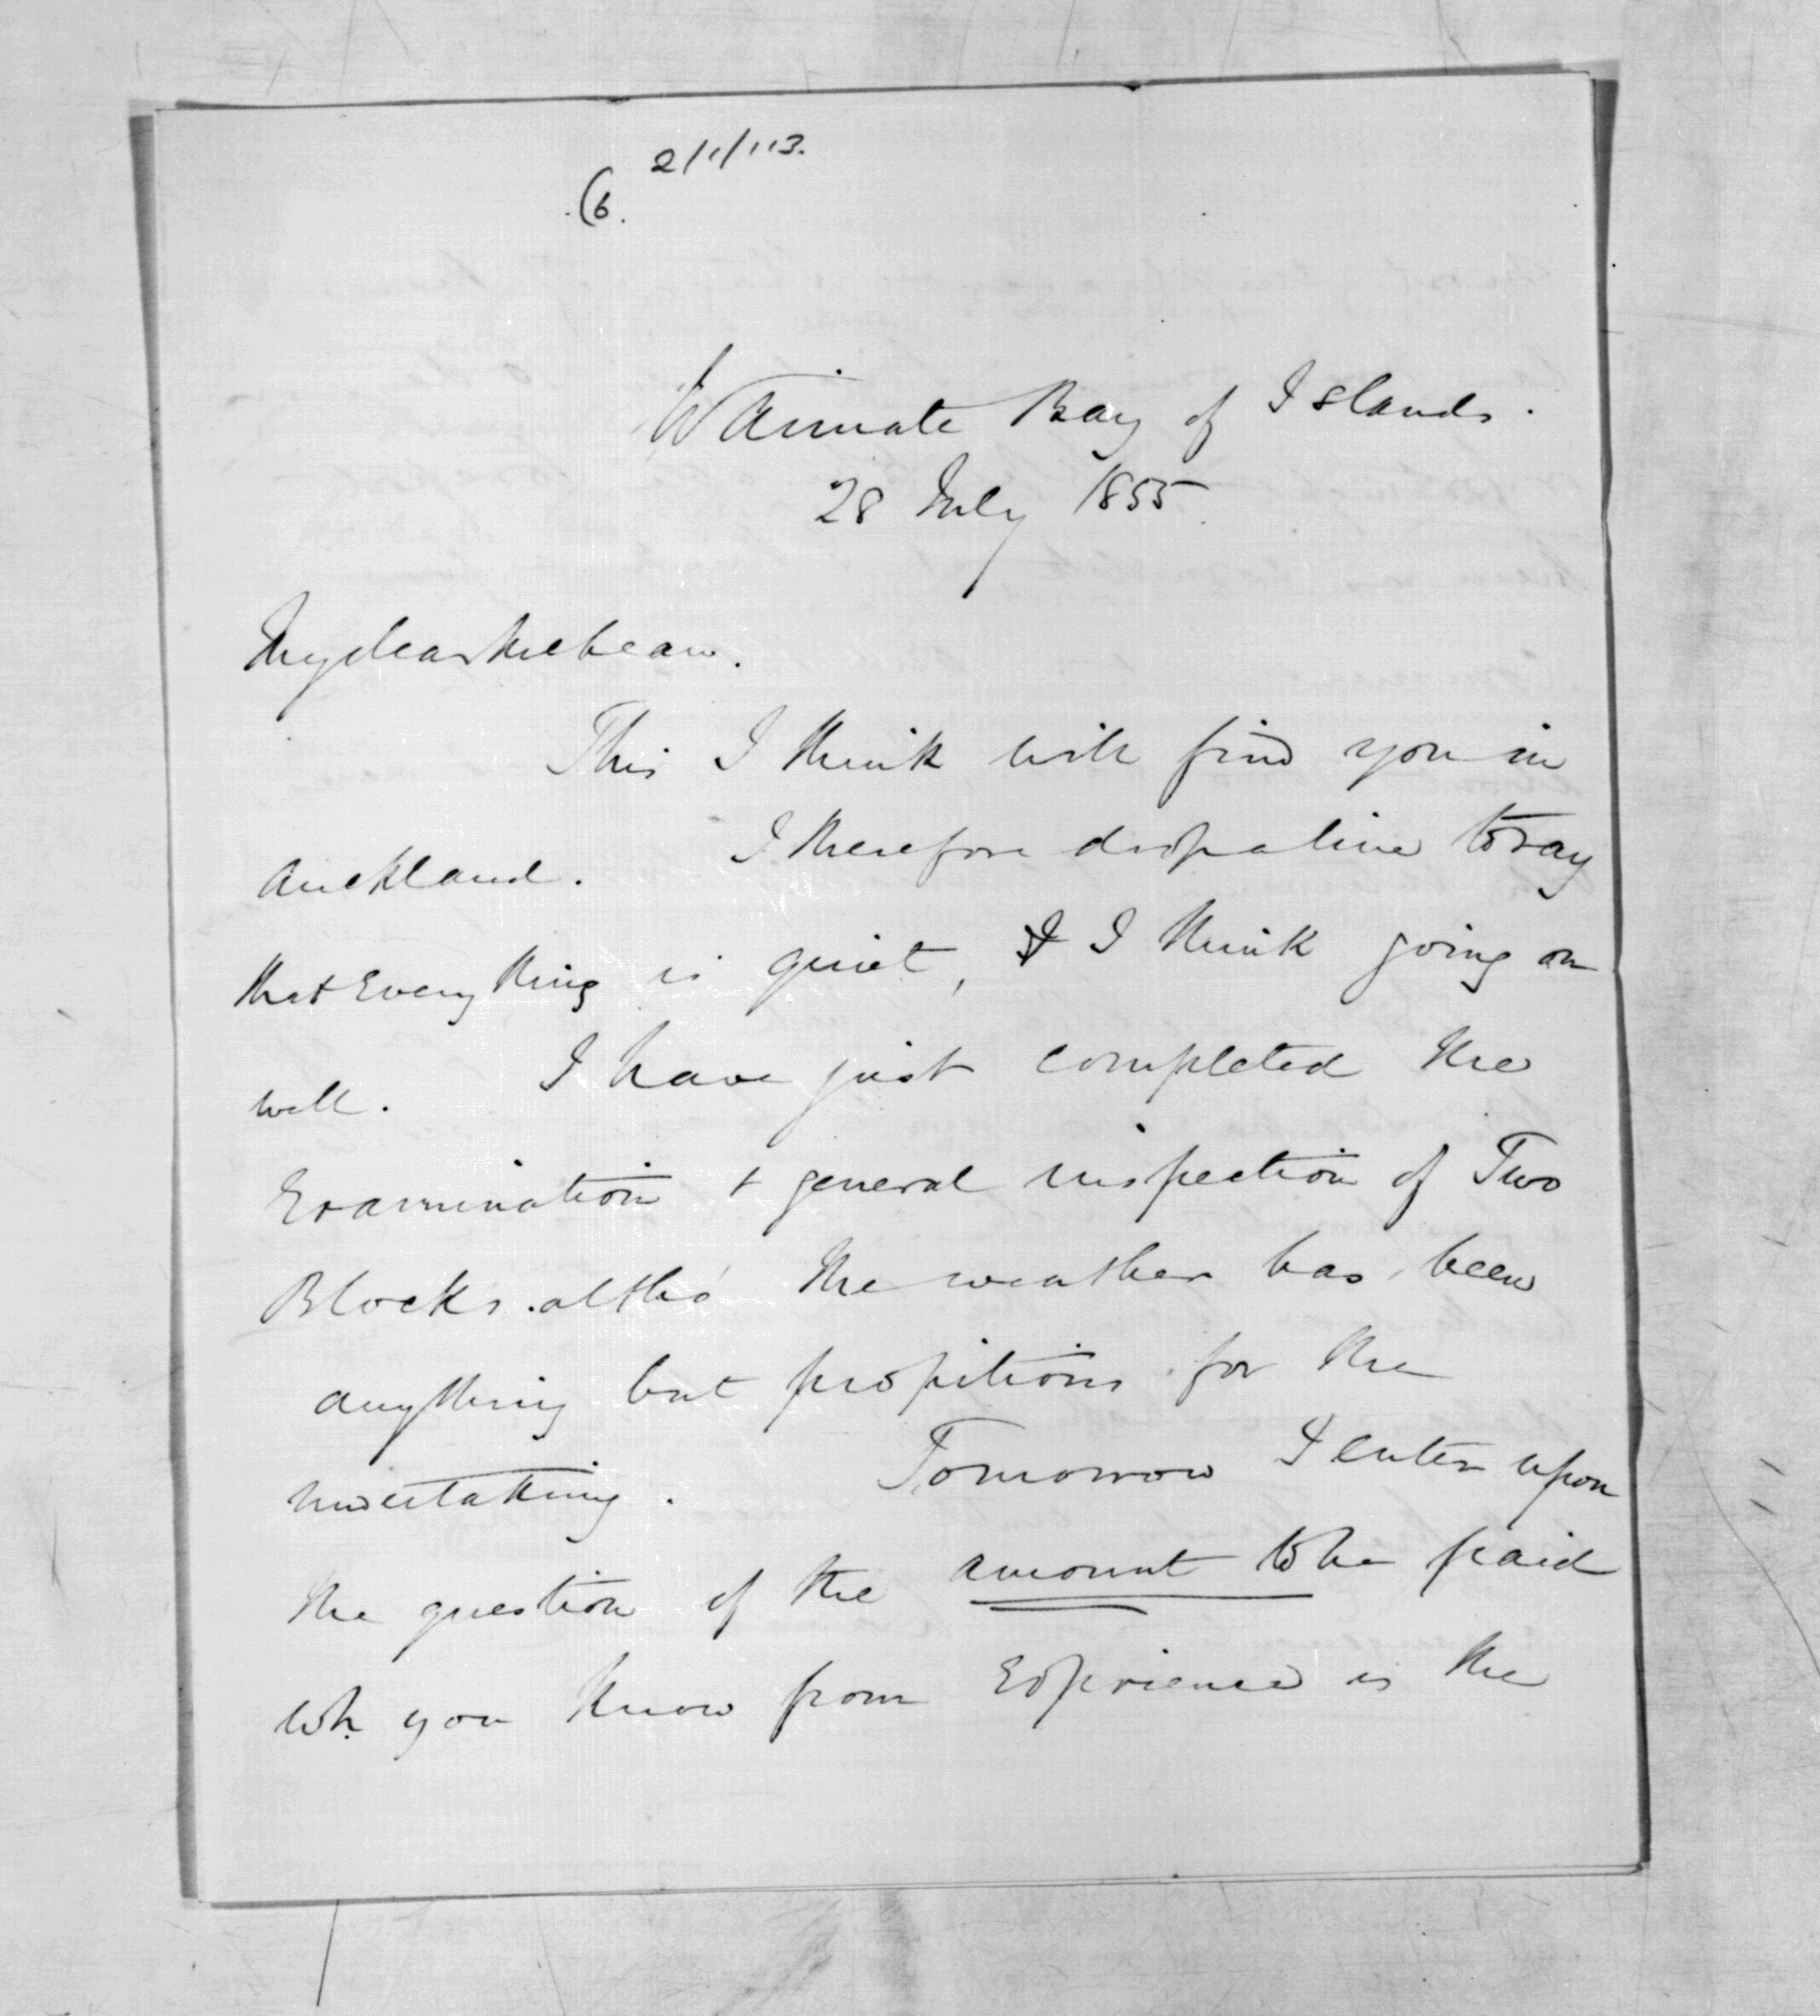 2/1/113.
(6.
Waimate Bay of Islands.
28 July 1855.
My dear McLean.
This I think will find you in
Auckland. I therefore drop a line to day
that Every thing is quiet, & I think going on
well. I have just completed the
Examination + general inspection of Two
Blocks. altho' the weather has been
anything but propitious for the
undertaking. Tomorrow I enter upon
the question of the amount to be paid
wh. you know from Experience is the